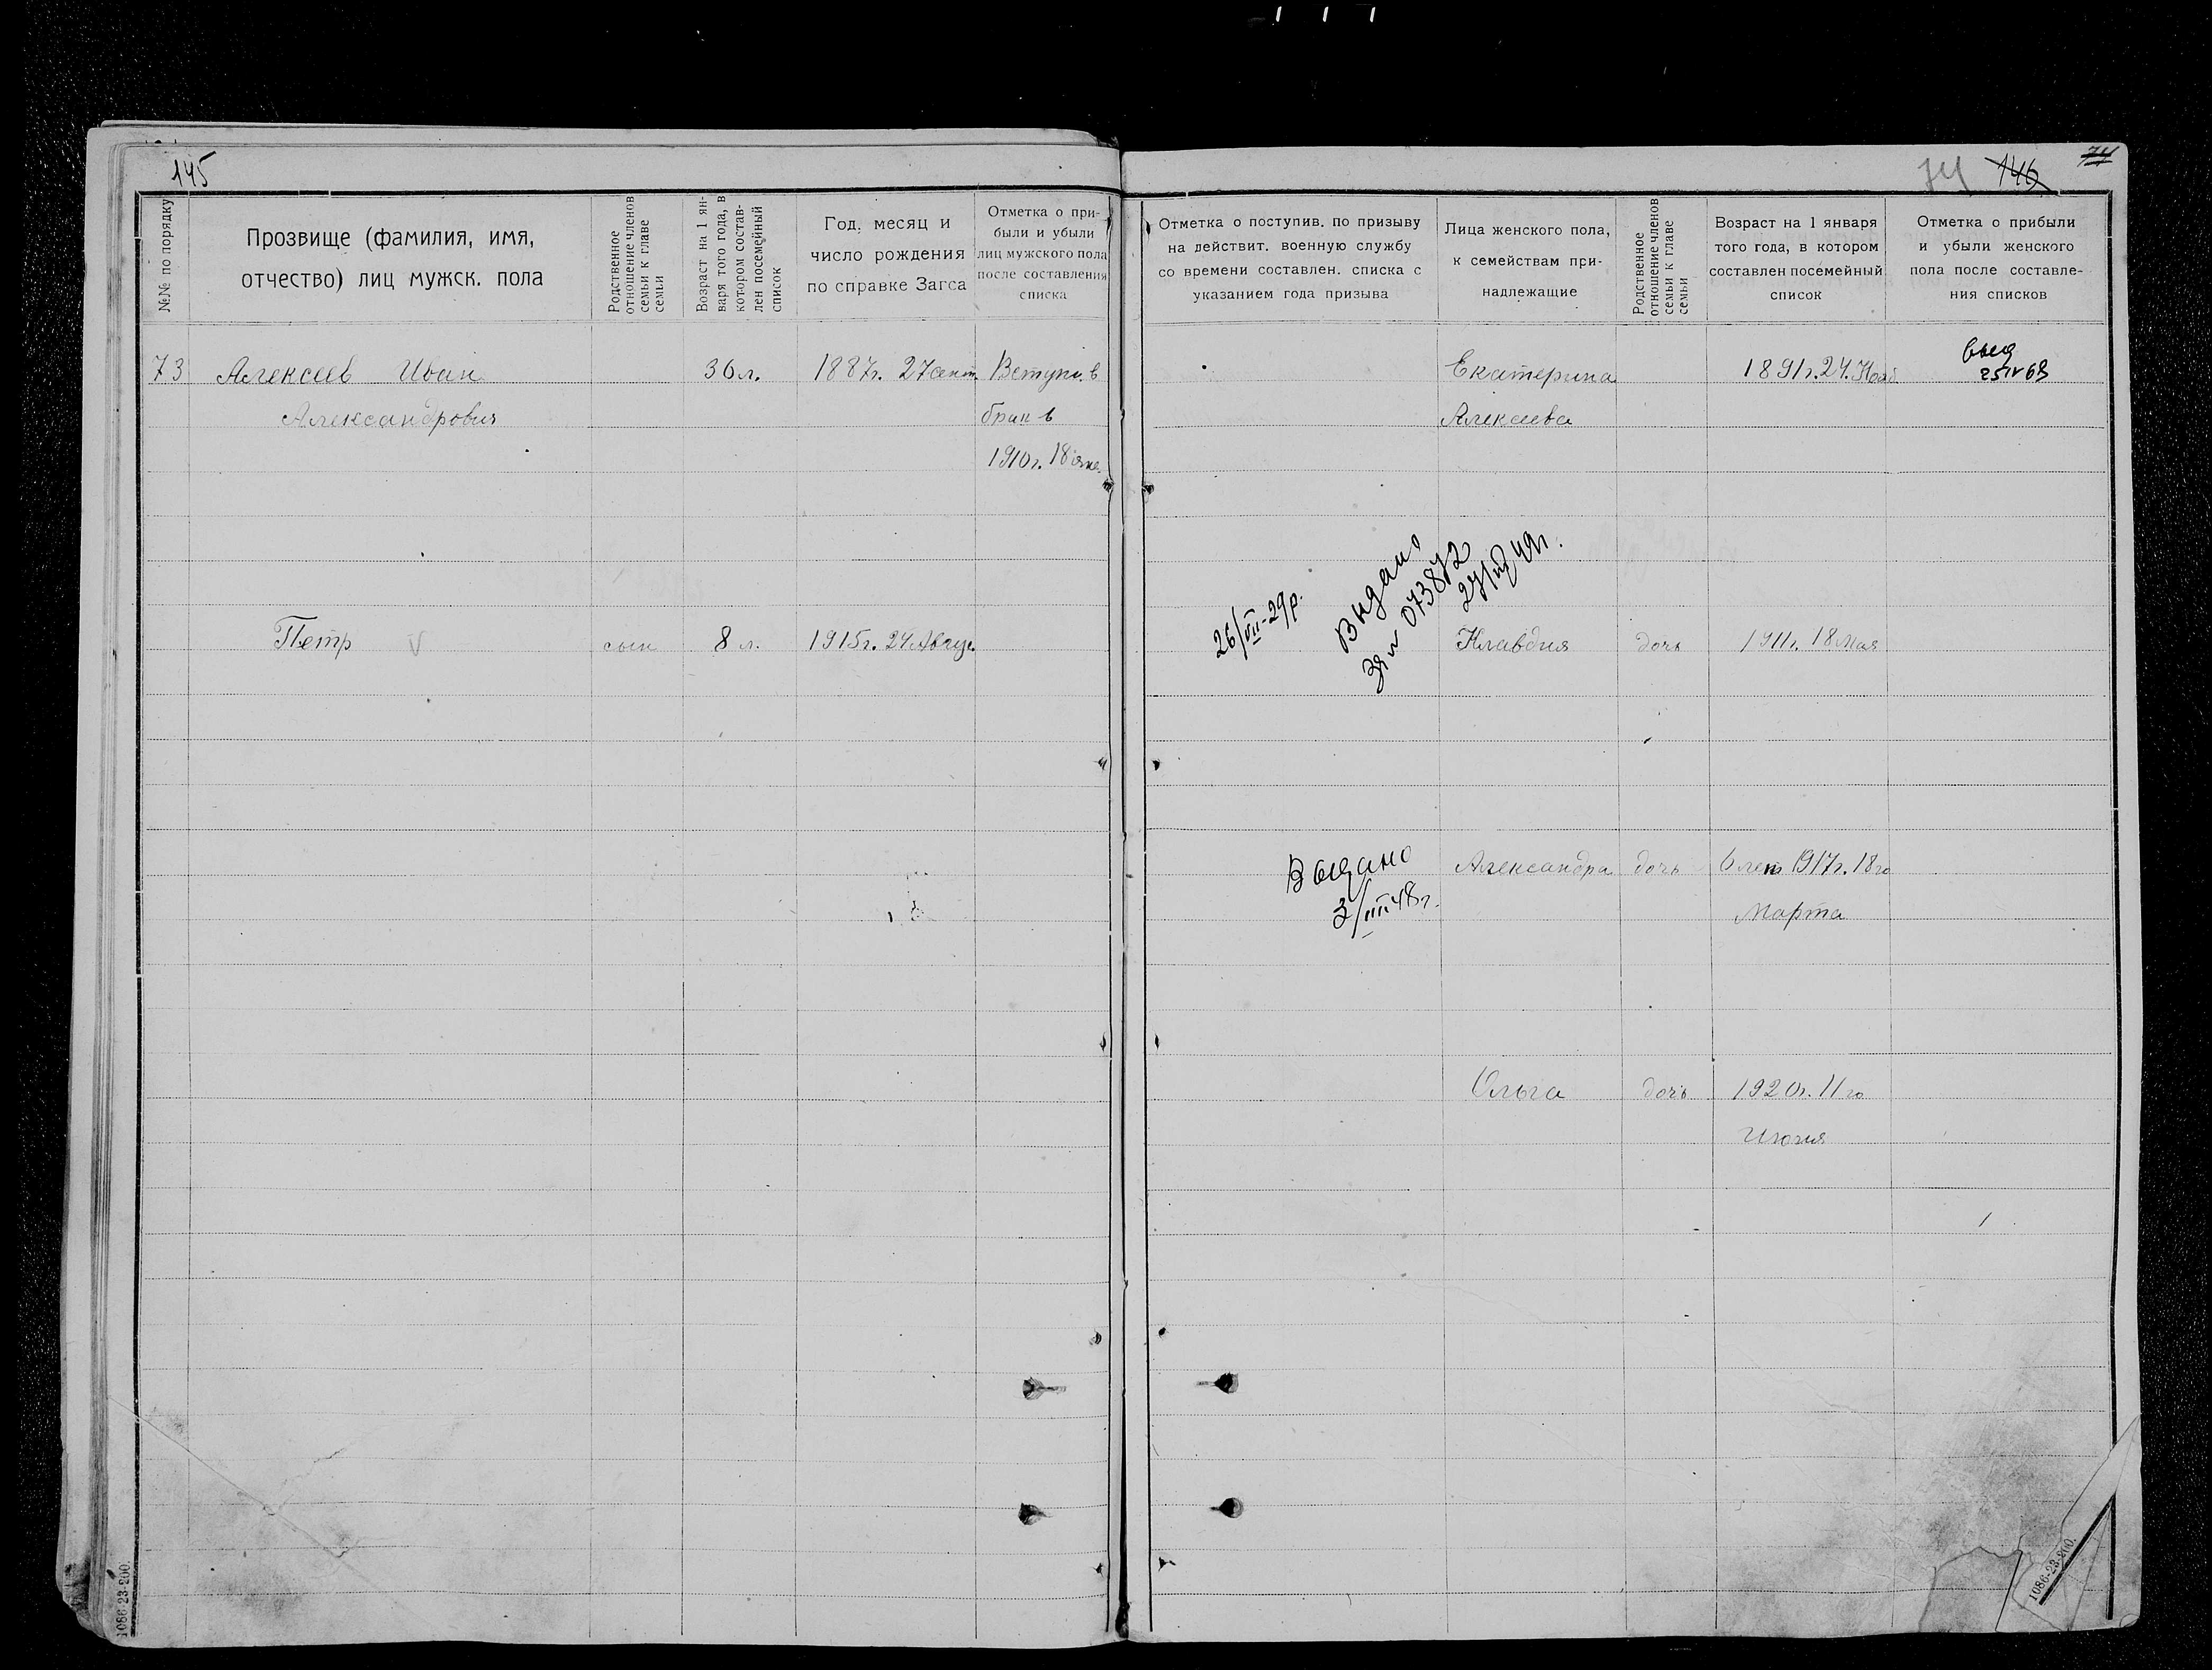 145
№№ по порядку
Прозвище (фамилия, имя,
отчество) лиц мужск. пола
Родственное
отношение членов
семьи к главе
семьи
Возраст на 1 ян-
варя того года, в
котором состав-
лен посемейный
список
Год, месяц и
число рождения
по справке Загса
Отметка о при-
были и убыли
лиц мужского пола
после составления
списка
73 Алексеев Иван 36 л. 1887г. 27 сент. Вступил. в
Александрович брак в
1910г. 18
Петр V сын 8 л. 1915г. 24 Авгус.
1086-23-200.
74 146 74
Отметка о поступив. по призыву
на действит. военную службу
со времени составлен. списка с
указанием года призыва
Лица женского пола,
к семействам при-
надлежащие
Родственное
отношение членов
семьи к главе
семьи
Возраст на 1 января
того года, в котором
составлен посемейный
список
Отметка о прибыли
и убыли женского
пола после составле-
ния списков
Екатерина 1891г. 24. Нояб.
Алексеева
25 IV 63
26/VII-29р.
Выдано
073872
Клавдия дочь 1911г. 18 Мая
Выдано
3/III 48г.
Александра дочь 6 лет 1917г. 18го
Марта
Ольга дочь 1920г. 11го
1086-23-200.